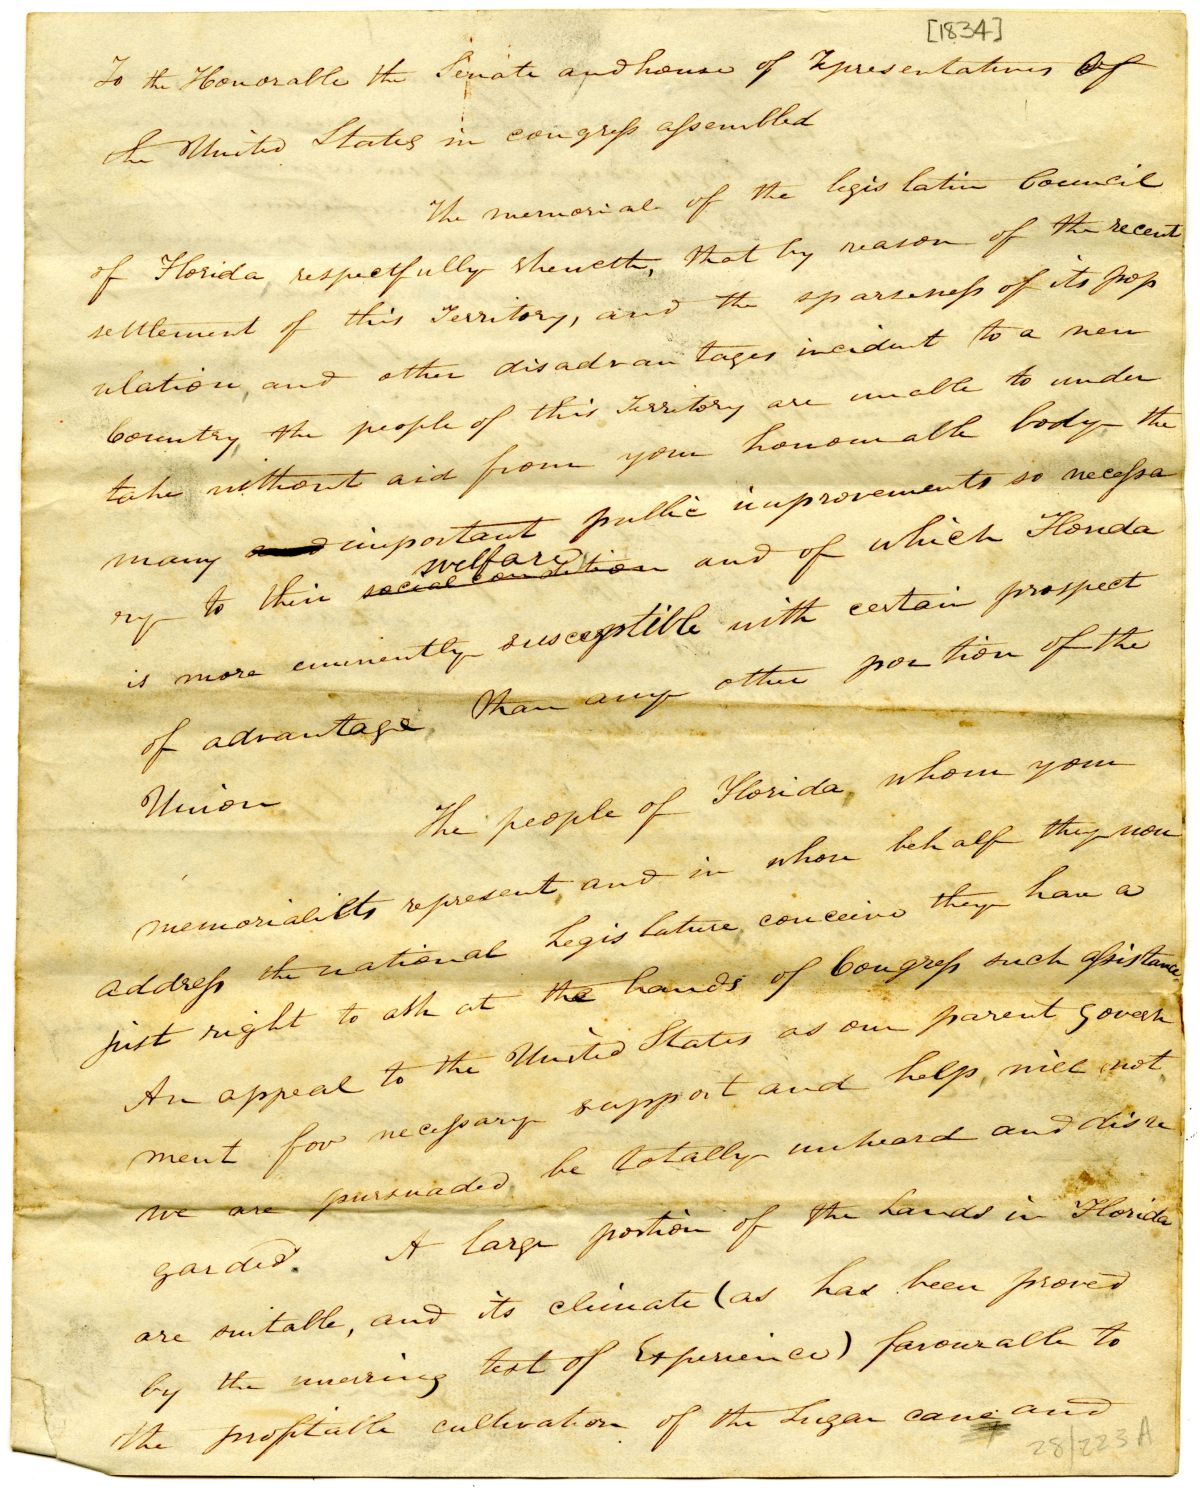 [1834]
To the Honorable the Senate and house of Representatives of
the United States in congress assembled
The memorial of the legislative Council
of Florida, respectfully sheweth, that by reason of the recent
settlement of this Territory, and the sparseness of its pop
ulation, and other disadvantages incident to a new
Country, the people of this Territory are unable to under
take without aid from your honourable body the
many and important public improvements so necessa
welfare
ry to their social condition and of which Florida
is more eminently susceptible with certain prospect
of advantage, than any other portion of the
Union
The people of Florida, whom your
memorialists represent, and in whose behalf they now
address the national Legislature, conceive they have a
just right to ask at the hands of Congress such assistance.
An appeal to the United States as our parent Govern
ment for necessary support and help, will not
we are pursuaded, be totally unheard and disre
garded. A large portion of the Lands in Florida
are suitable, and its climate (as has been proved
by the unerring test of Experience) favourable to
the profitable cultivation of the Sugar cane and
28/223A